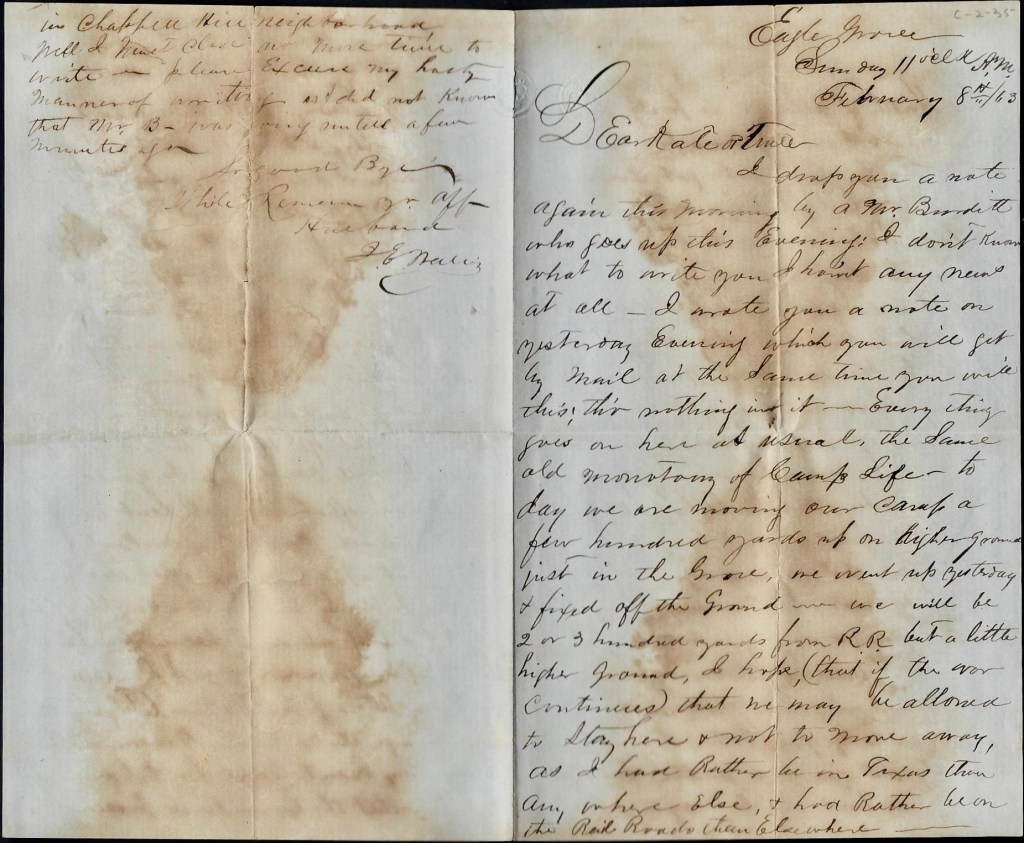 C-2-35
Eagle Grove
Sunday 11 oclk A.M
February 8th/63
DEar Kate or
I drop you a note
again this Morning by a Mr. Burditt
who goes up this Evening: I don't Know
what to write you I hav'nt any news
at all — I wrote you a note on
yesterday Evening which you will get
by Mail at the Same time you will
this; tho nothing in it — Every thing
goes on here as usual, the Same
old monotony of Camp Life — to
day we are moving our camp a
few hundred yards up on higher ground
just in the Grove, we went up yesterday
& fixed off the Ground — we will be
2 or 3 hundred yards from R R. but a little
higher ground, I hope, (that if the war
Continues) that we may be allowed
to Stay here & not to Move away,
as I had Rather be in Texas than
any where Else, & had Rather be on
the Rail Roads than Elsewhere —
in Chappell Hill neighborhood
Well I Must Close no More time to
write — please Excuse My hasty
Manner of writing as I did not Know
that Mr. B— was going untill a few
Minutes ago
So good Bye
While I Remain yr. aff
Husband